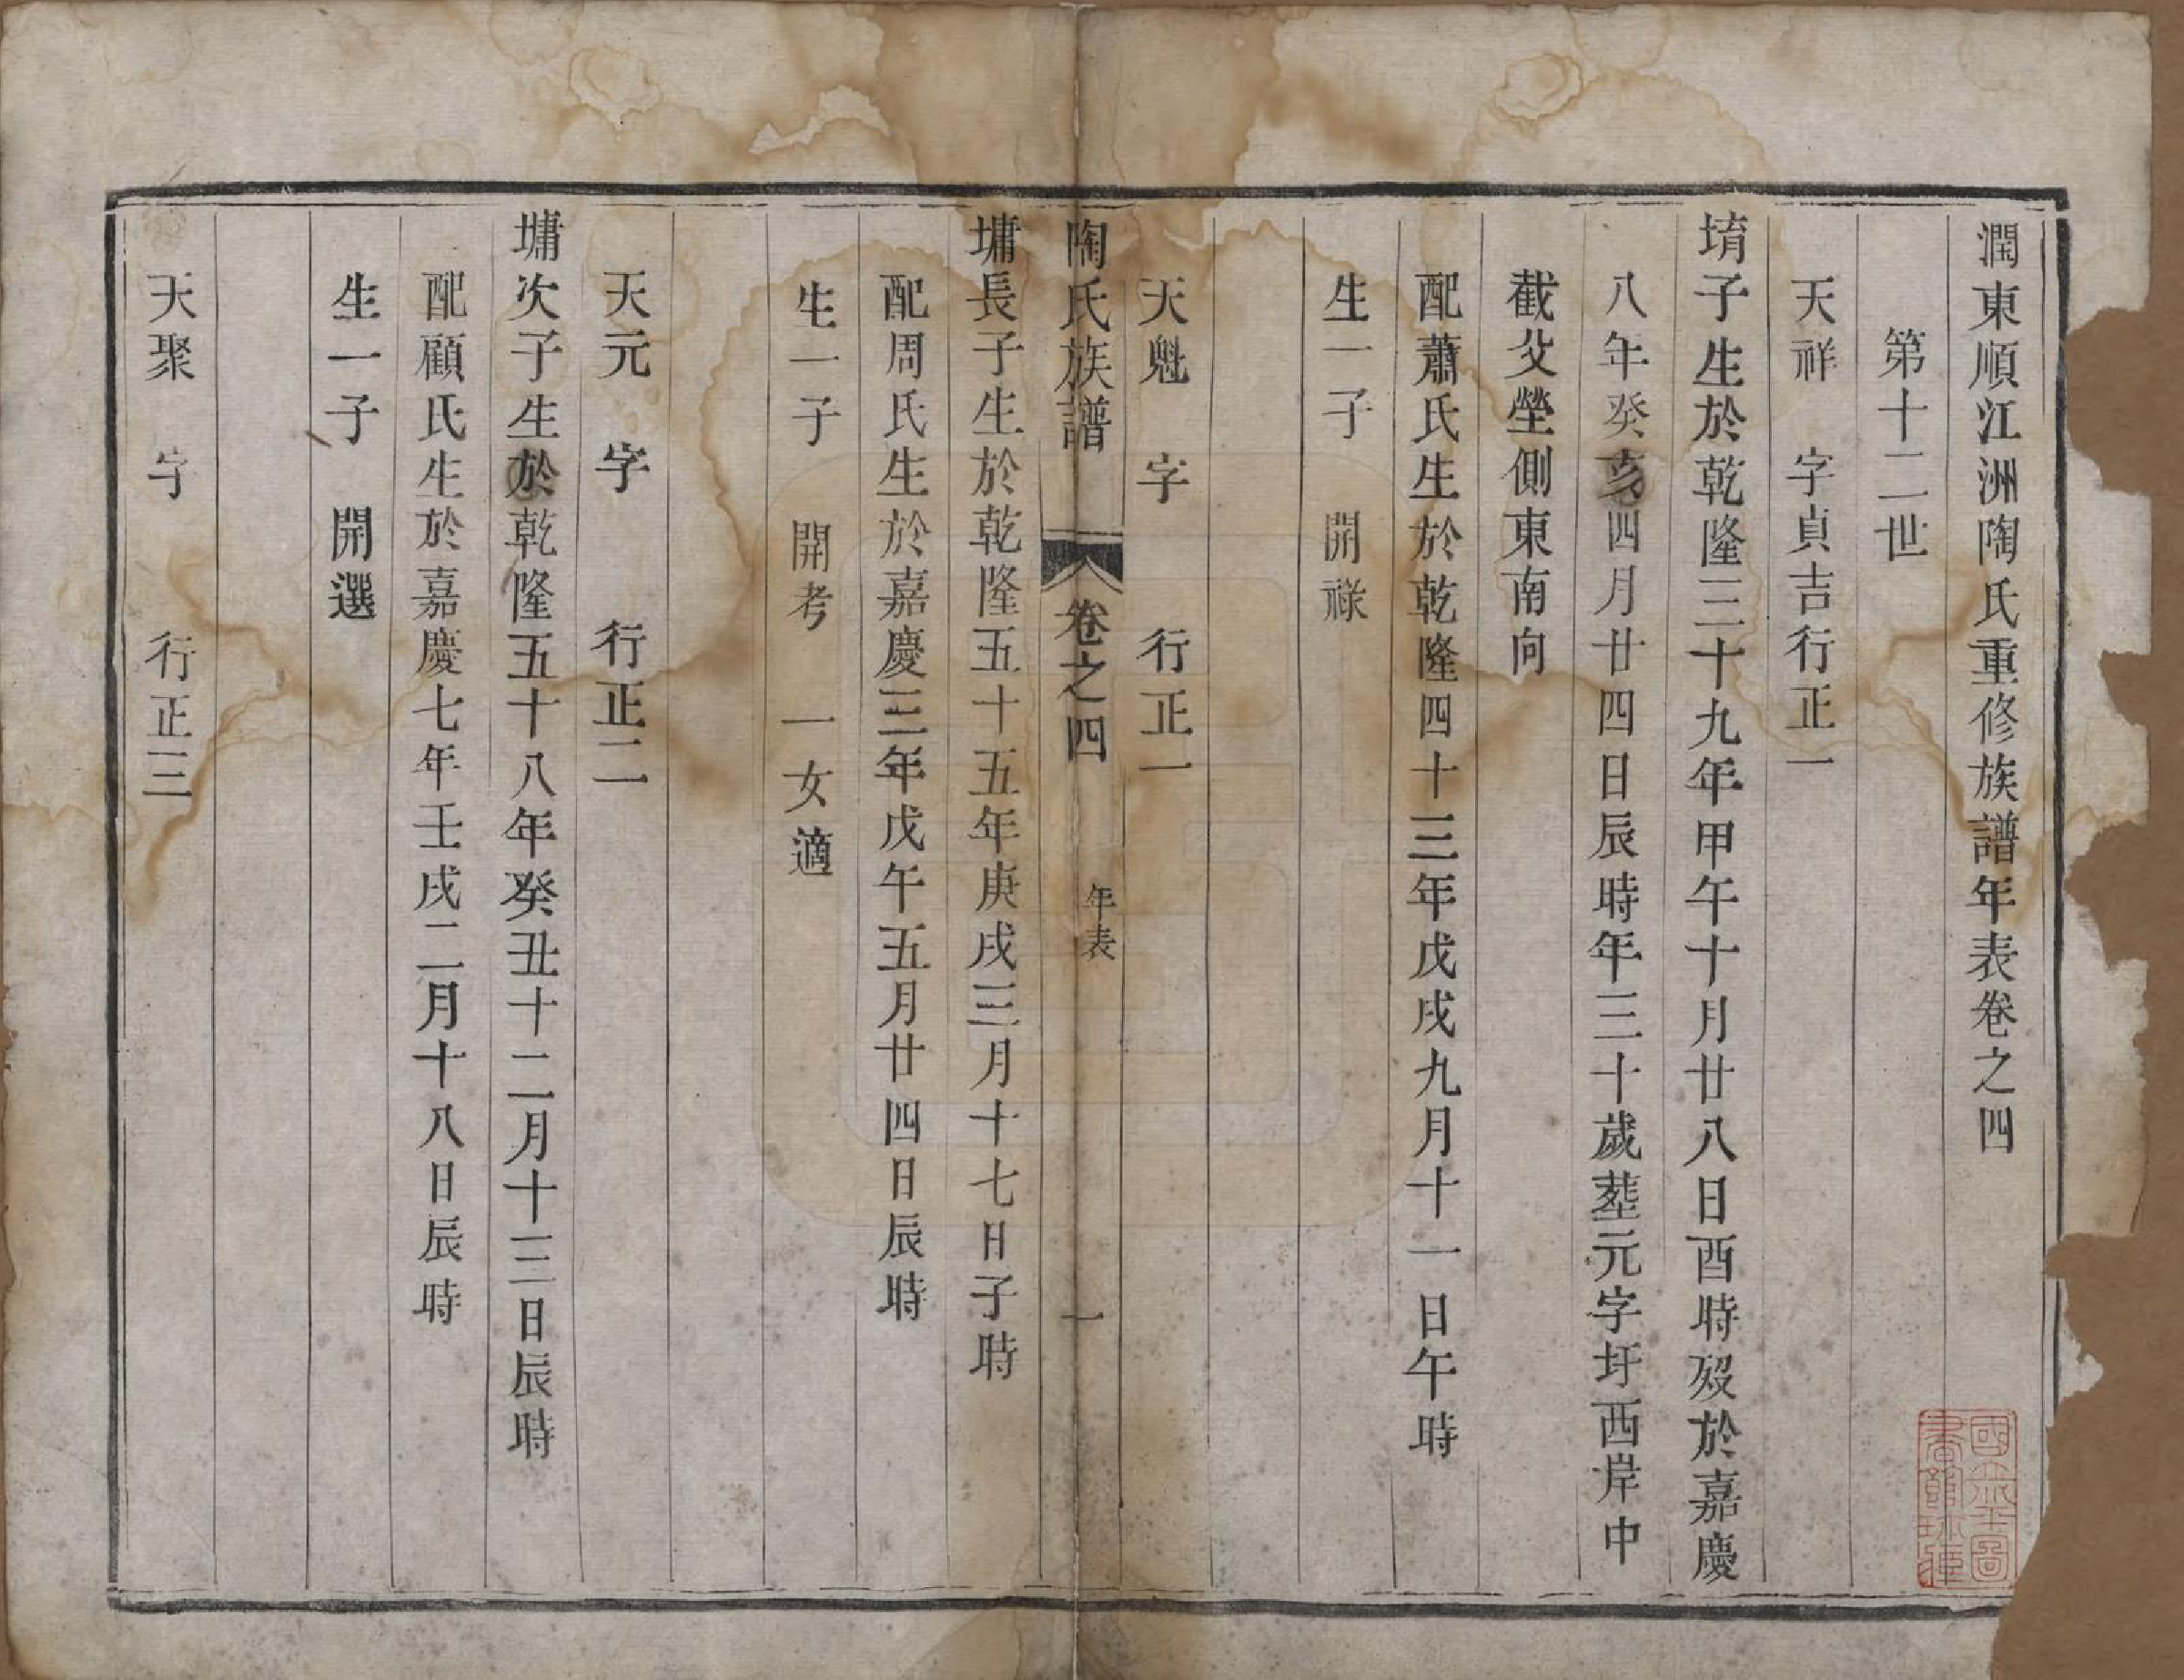 潤東順江洲陶氏重修族譜年表卷之四
第十二世
天祥　字貞吉行正一
堉子生於乾隆三十九年甲午十月廿八日酉時歿於嘉慶
八年癸亥四月廿四日辰時年三十歲塟元字圩西岸中
截父塋側東南向
配蕭氏生於乾隆四十三年戊戌九月十一日午時
生一子　開祿
天魁　字　行正一
陶氏族譜　卷之四　年表　一
墉長子生於乾隆五十五年庚戌三月十七日子時
配周氏生於嘉慶三年戊午五月廿四日辰時
生一子　開考　一女適
天元　字　行正二
墉次子生於乾隆五十八年癸丑十二月十三日辰時
配顧氏生於嘉慶七年壬戌二月十八日辰時
生一子　開選
天聚　字　行正三
國立北平圖
書館珍藏